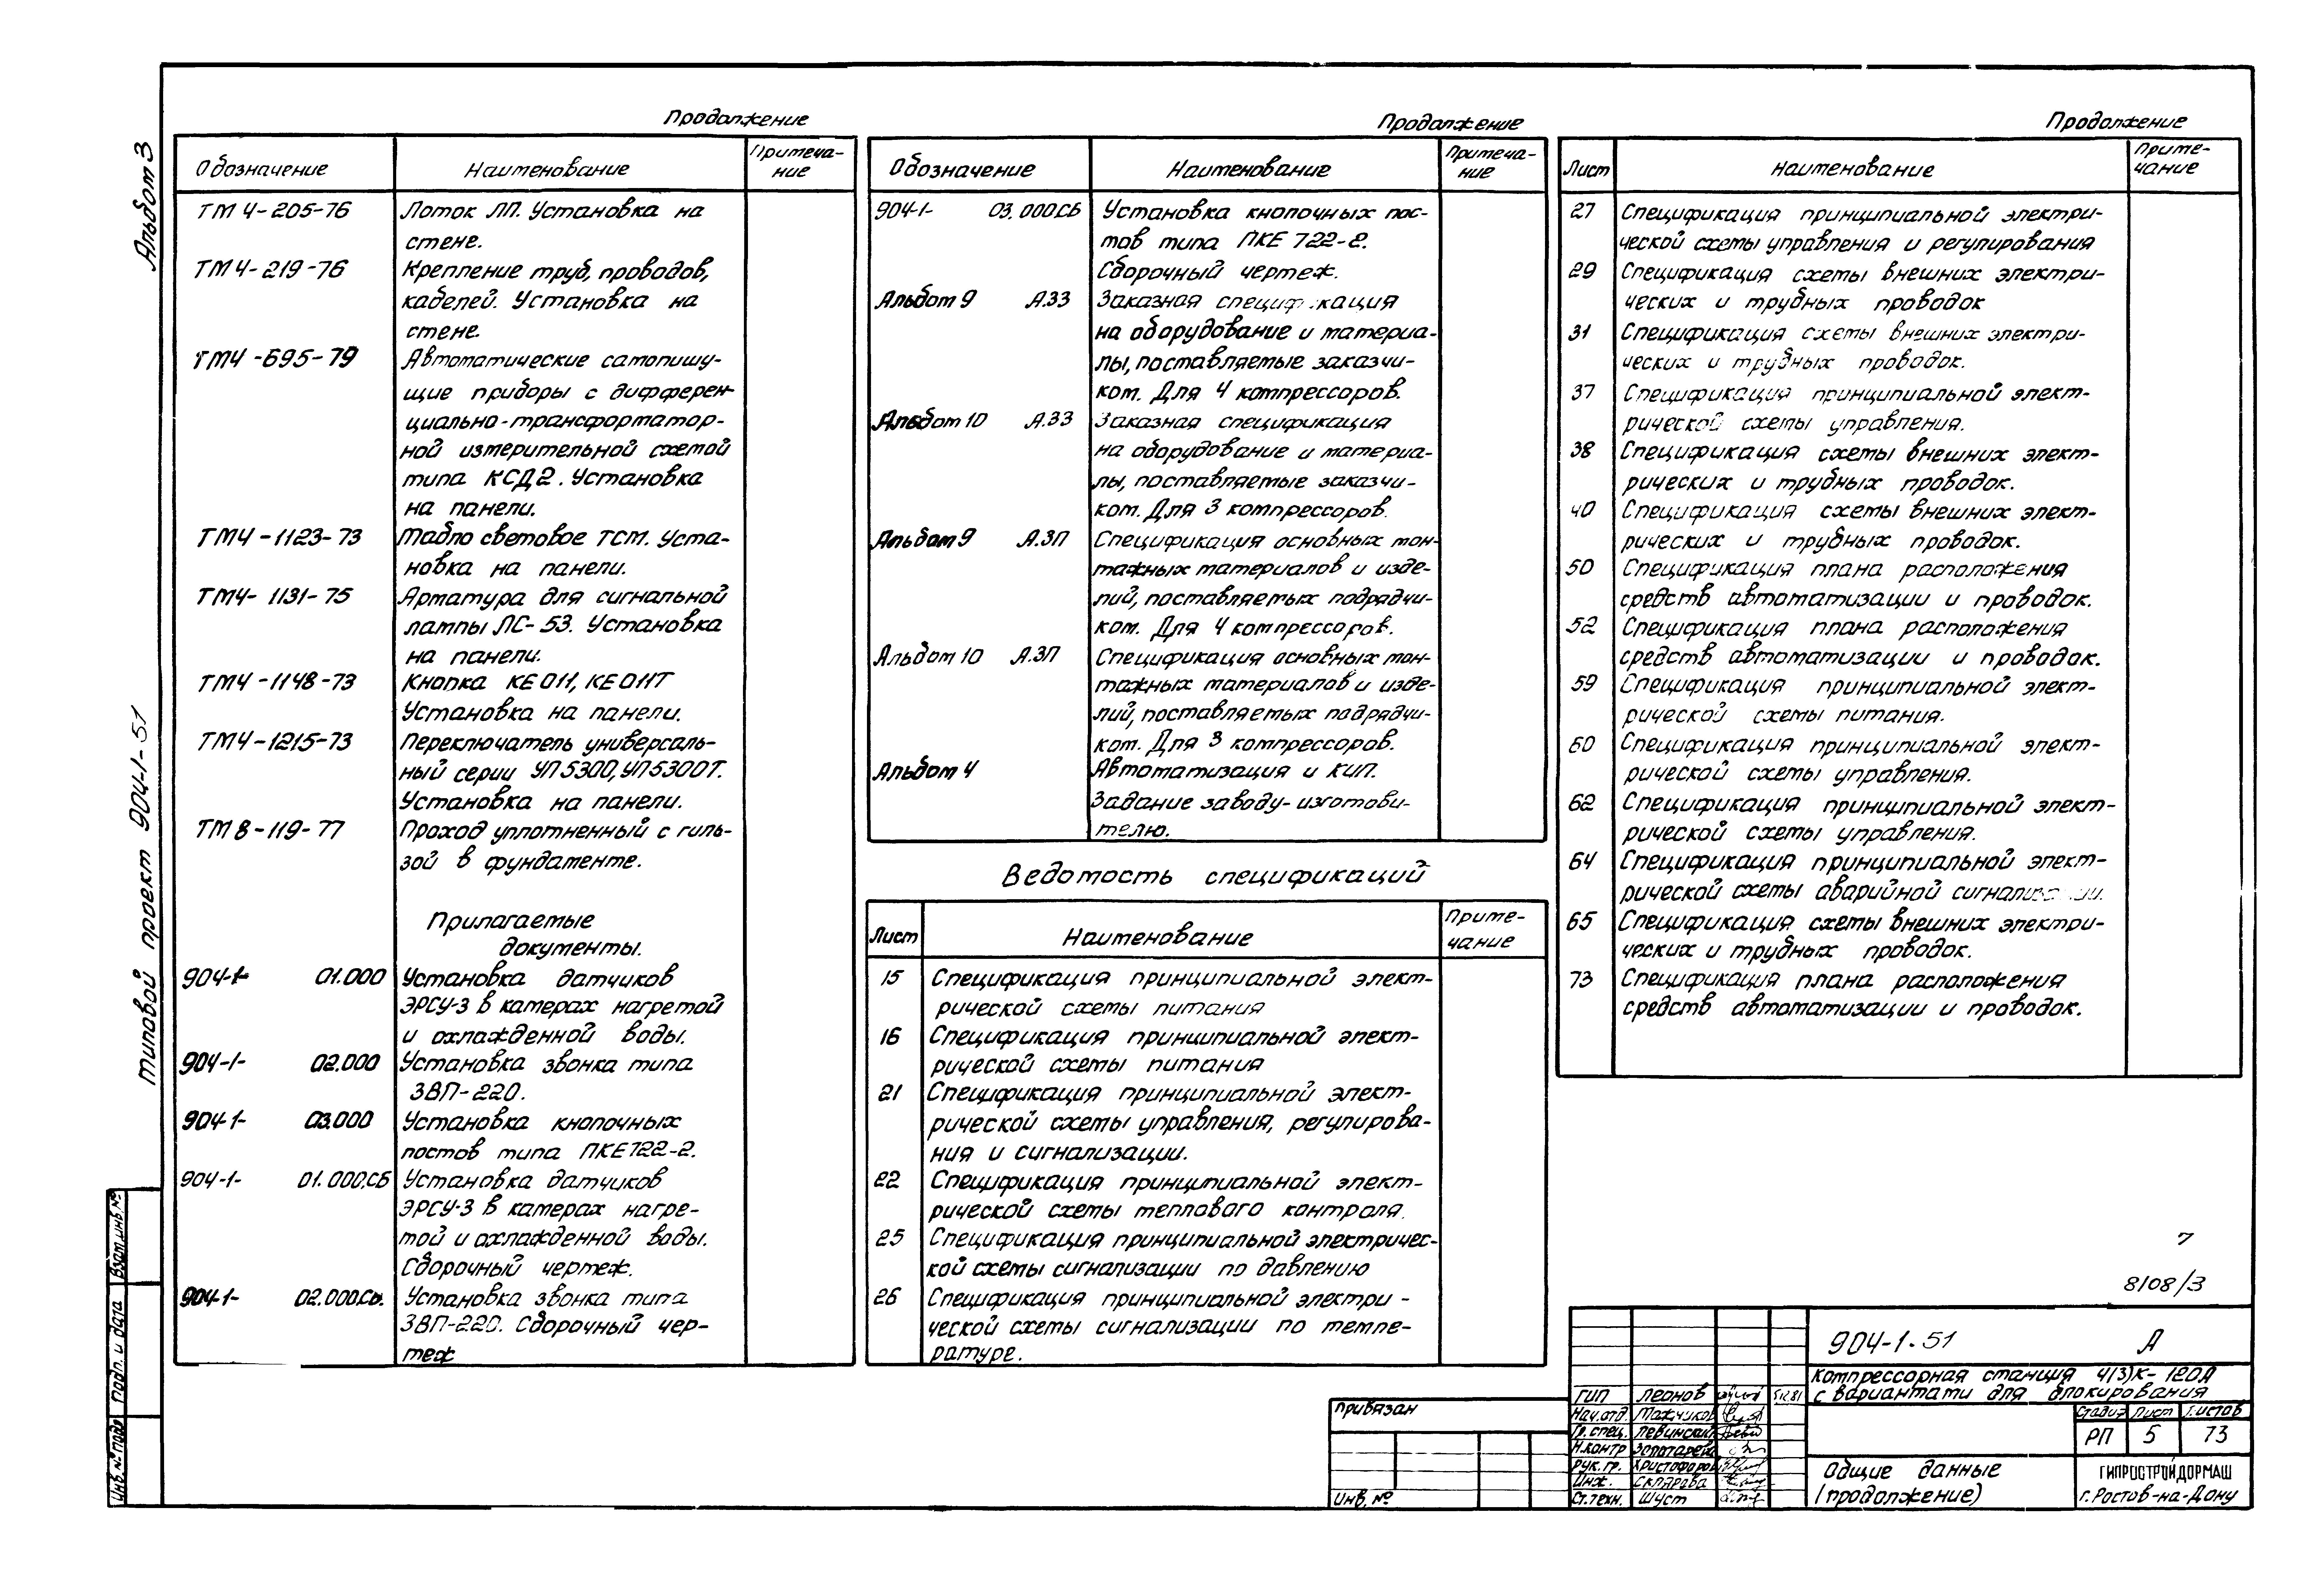 Альбом 3
Типовой проект 904-1-51
Продолжение
Обозначение Наименование Примеча-
ние
ТМ4-205-76 Лоток ЛП. Установка на
стене.
ТМ4-219-76 Крепление труб, проводов,
кабелей. Установка на
стене.
ТМ4-695-79 Автоматические самопишу-
щие приборы с дифферен-
циально-трансформатор-
ной измерительной схемой
типа КСД2. Установка
на панели.
ТМ4-1123-73 Табло световое ТСМ. Уста-
новка на панели.
ТМ4-1131-75 Арматура для сигнальной
лампы ЛС-53. Установка
на панели.
ТМ4-1148-73 Кнопка КЕ 011, КЕ 011Т
Установка на панели.
ТМ4-1215-73 Переключатель универсаль-
ный серии УП 5300, УП5300Т.
Установка на панели.
ТМ8-119-77 Проход уплотненный с гиль-
зой в фундаменте.
Прилагаемые
документы.
904-1- 01.000 Установка датчиков
ЭРСУ-3 в камерах нагретой
и охлажденной воды.
904-1- 02.000 Установка звонка типа
ЗВП-220.
904-1- 03.000 Установка кнопочных
постов типа ПКЕ722-2.
904-1- 01.000.СБ Установка датчиков
ЭРСУ-3 в камерах нагре-
той и охлажденной воды.
Сборочный чертеж.
904-1- 02.000.СБ. Установка звонка типа
ЗВП-220. Сборочный чер-
теж
Продолжение
Обозначение Наименование Примеча-
ние
904-1- 03.000.СБ Установка кнопочных пос-
тов типа ПКЕ 722-2.
Сборочный чертеж.
Альбом 9 А.ЗЗ Заказная спецификация
на оборудование и материа-
лы, поставляемые заказчи-
ком. Для 4 компрессоров.
Альбом 10 А.ЗЗ Заказная спецификация
на оборудование и материа-
лы, поставляемые заказчи-
ком. Для 3 компрессоров.
Альбом 9 А.ЗП Спецификация основных мон-
тажных материалов и изде-
лий, поставляемых подрядчи-
ком. Для 4 компрессоров.
Альбом 10 А.ЗП Спецификация основных мон-
тажных материалов и изде-
лий, поставляемых подрядчи-
ком. Для 3 компрессоров.
Альбом 4 Автоматизация и КИП.
Задание заводу-изготови-
телю.
Ведомость спецификаций
Лист Наименование Приме-
чание
15 Спецификация принципиальной элект-
рической схемы питания
16 Спецификация принципиальной элект-
рической схемы питания
21 Спецификация принципиальной элект-
рической схемы управления, регулирова-
ния и сигнализации.
22 Спецификация принципиальной элект-
рической схемы теплового контроля.
25 Спецификация принципиальной электричес-
кой схемы сигнализации по давлению
26 Спецификация принципиальной электри-
ческой схемы сигнализации по темпе-
ратуре.
Продолжение
Лист Наименование Приме-
чание
27 Спецификация принципиальной электри-
ческой схемы управления и регулирования
29 Спецификация схемы внешних электри-
ческих и трубных проводок
31 Спецификация схемы внешних электри-
ческих и трубных проводок.
37 Спецификация принципиальной элект-
рической схемы управления.
38 Спецификация схемы внешних элект-
рических и трубных проводок.
40 Спецификация схемы внешних элект-
рических и трубных проводок.
50 Спецификация плана расположения
средств автоматизации и проводок.
52 Спецификация плана расположения
средств автоматизации и проводок.
59 Спецификация принципиальной элект-
рической схемы питания.
60 Спецификация принципиальной элект-
рической схемы управления.
62 Спецификация принципиальной элект-
рической схемы управления.
64 Спецификация принципиальной элект-
рической схемы аварийной сигнализации.
65 Спецификация схемы внешних электри-
ческих и трубных проводок.
73 Спецификация плана расположения
средств автоматизации и проводок.
7
8108/3
904-1-51 А
Компрессорная станция 4(3)К-120А
с вариантами для блокирования
ГИП Леонов
Нач.отд. Мажчиков
Гр.спец. Левинский
Н.контр Золотарева
Рук.гр. Христофоров
Инж. Склярова
Ст.техн. Шуст
Стадия Лист Листов
РП 5 73
Общие данные
(продолжение)
ГИПРОСТРОЙДОРМАШ
г. Ростов-на-Дону
Привязан
Инв. №
Взам. инв. №
Подп. и дата
Инв. № подл.